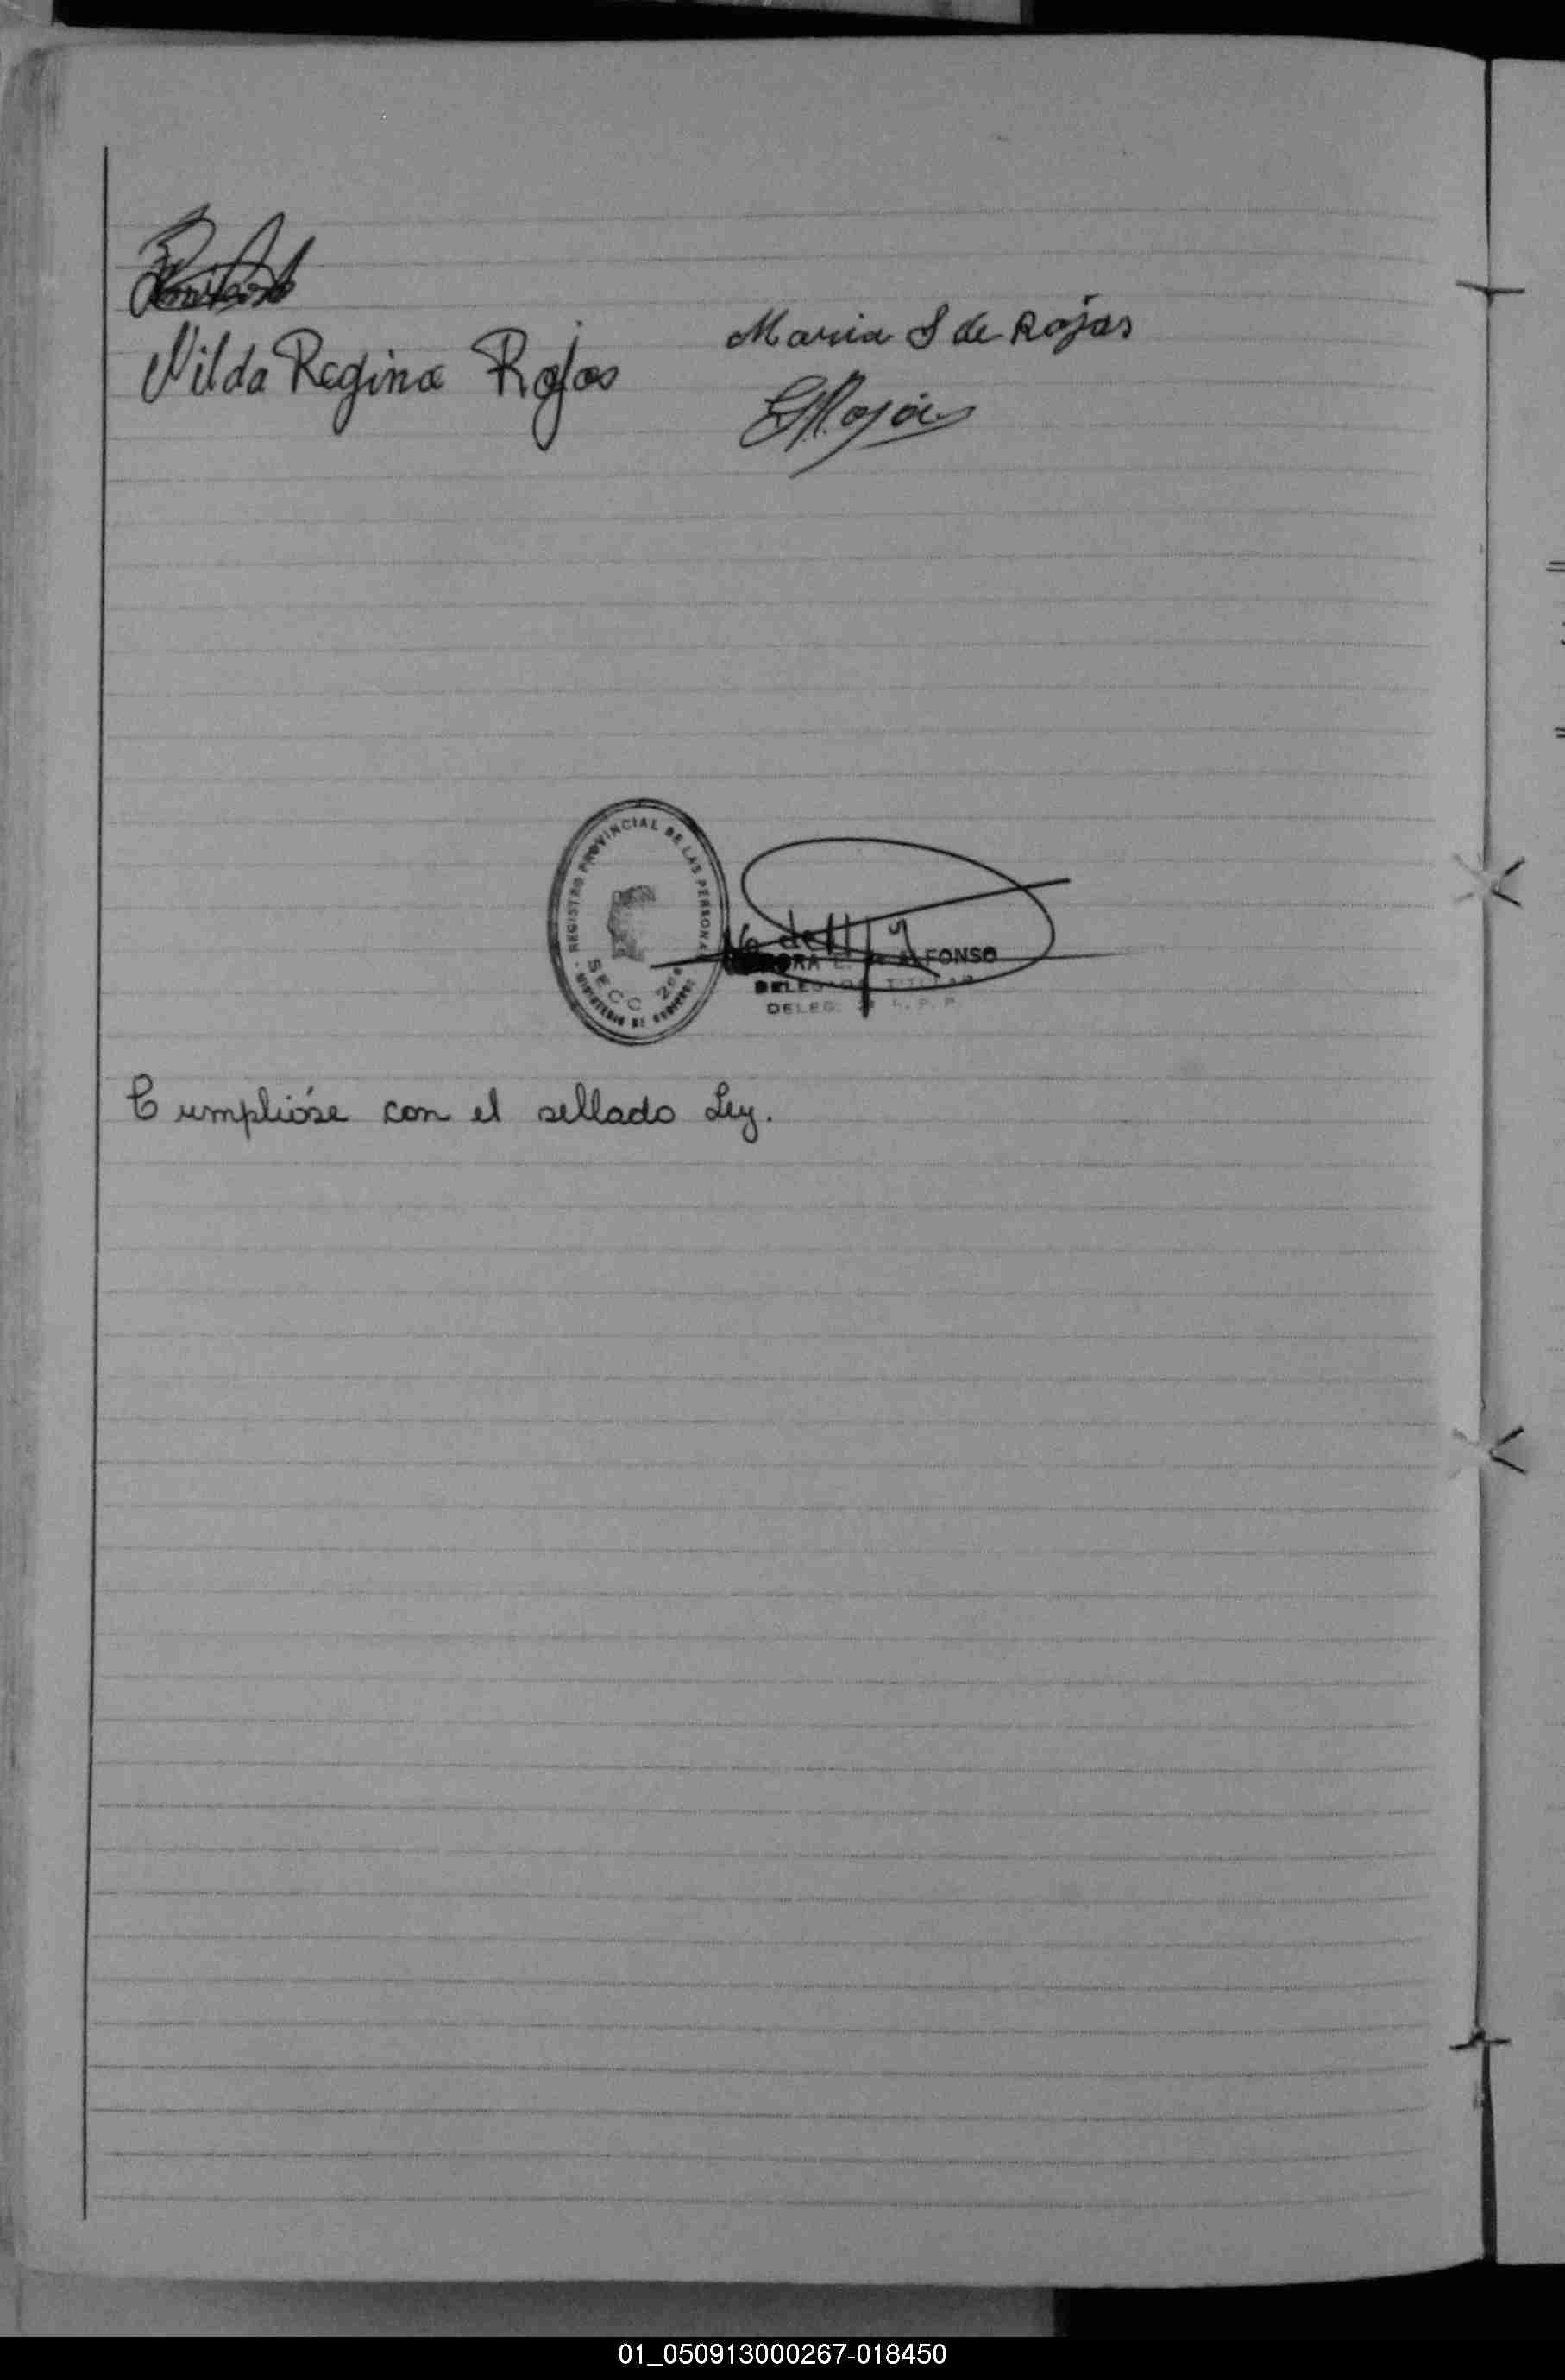 Nilda Regina Rojas
Maria S de Rojas
Rojas
REGISTRO PROVINCIAL DE LAS PERSONAS
SECC 2ª
MINISTERIO DE GOBIERNO
DELEG.
Cumplióse con el sellado Ley.
01_050913000267-018450